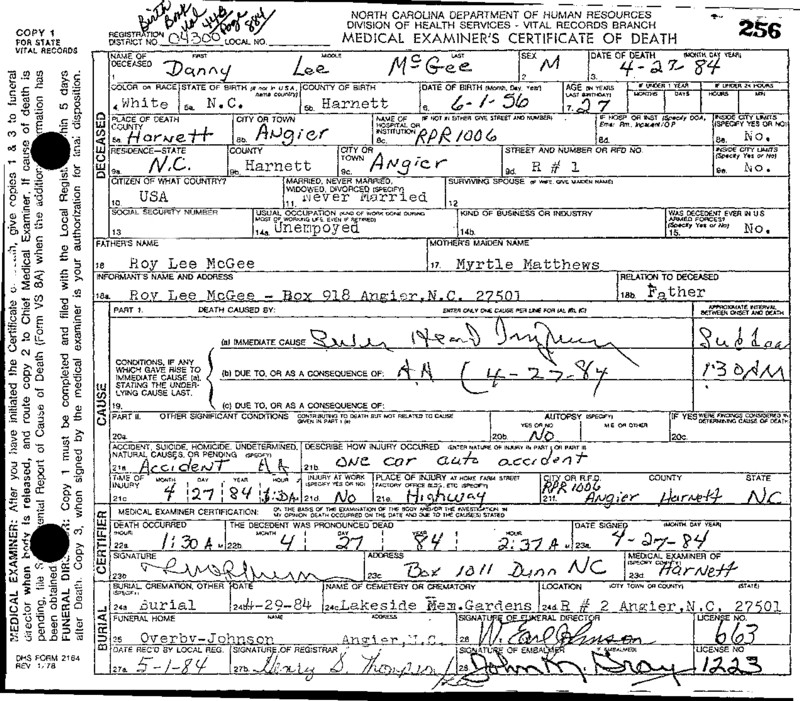 COPY 1
FOR STATE
VITAL RECORDS
Birth
Book
Vol 44B
Page 884
NORTH CAROLINA DEPARTMENT OF HUMAN RESOURCES
DIVISION OF HEALTH SERVICES - VITAL RECORDS BRANCH
MEDICAL EXAMINER'S CERTIFICATE OF DEATH
256
REGISTRATION DISTRICT NO. 04300 LOCAL NO.
NAME OF DECEASED FIRST MIDDLE LAST SEX DATE OF DEATH (MONTH, DAY, YEAR)
1. Danny Lee McGee 2. M 3. 4-27-84
COLOR OR RACE STATE OF BIRTH (If not in U.S.A., name country) COUNTY OF BIRTH DATE OF BIRTH (Month, Day, Year) AGE (IN YEARS LAST BIRTHDAY) IF UNDER 1 YEAR MONTHS DAYS IF UNDER 24 HOURS HOURS MIN
4. White 5a. N.C. 5b. Harnett 6. 6-1-56 7. 27
PLACE OF DEATH COUNTY CITY OR TOWN NAME OF HOSPITAL OR INSTITUTION (IF NOT IN EITHER GIVE STREET AND NUMBER) IF HOSP. OR INST. (Specify DOA, Emer. Rm., Inpatient/OP) INSIDE CITY LIMITS (SPECIFY YES OR NO)
8a. Harnett 8b. Angier 8c. RPR1006 8d. 8e. No.
RESIDENCE-STATE COUNTY CITY OR TOWN STREET AND NUMBER OR RFD NO. INSIDE CITY LIMITS (Specify Yes or No)
9a. N.C. Harnett Angier 9d. R # 1 9e. No.
CITIZEN OF WHAT COUNTRY? MARRIED, NEVER MARRIED, WIDOWED, DIVORCED (SPECIFY) SURVIVING SPOUSE (IF WIFE, GIVE MAIDEN NAME)
10. USA 11. Never Married 12
SOCIAL SECURITY NUMBER USUAL OCCUPATION (KIND OF WORK DONE DURING MOST OF WORKING LIFE, EVEN IF RETIRED) KIND OF BUSINESS OR INDUSTRY WAS DECEDENT EVER IN U.S. ARMED FORCES? (Specify Yes or No)
13 14a. Unempoyed 14b. 15. No.
FATHER'S NAME MOTHER'S MAIDEN NAME
16 Roy Lee McGee 17. Myrtle Matthews
INFORMANT'S NAME AND ADDRESS RELATION TO DECEASED
18a. Roy Lee McGee - Box 918 Angier,N.C. 27501 18b. Father
PART 1. DEATH CAUSED BY: ENTER ONLY ONE CAUSE PER LINE FOR (A), (B), (C) APPROXIMATE INTERVAL BETWEEN ONSET AND DEATH
(a) IMMEDIATE CAUSE Head Injury
CONDITIONS, IF ANY WHICH GAVE RISE TO IMMEDIATE CAUSE (a), STATING THE UNDERLYING CAUSE LAST.
(b) DUE TO, OR AS A CONSEQUENCE OF: AA (4-27-84 1:30 AM
19. (c) DUE TO, OR AS A CONSEQUENCE OF:
PART II. OTHER SIGNIFICANT CONDITIONS CONTRIBUTING TO DEATH BUT NOT RELATED TO CAUSE GIVEN IN PART I (a) AUTOPSY (SPECIFY) YES OR NO M E OR OTHER IF YES WERE FINDINGS CONSIDERED IN DETERMINING CAUSE OF DEATH
20a. 20b. NO 20c.
ACCIDENT, SUICIDE, HOMICIDE, UNDETERMINED, NATURAL CAUSES, OR PENDING (SPECIFY) DESCRIBE HOW INJURY OCCURED (ENTER NATURE OF INJURY IN PART I OR PART II)
21a. Accident AA 21b one car auto accident
TIME OF INJURY MONTH DAY YEAR HOUR INJURY AT WORK (SPECIFY YES OR NO) PLACE OF INJURY AT HOME FARM STREET FACTORY OFFICE BLDG. ETC (SPECIFY) CITY OR R.F.D. COUNTY STATE
21c. 4 27 84 1:30A 21d. No 21e. Highway 21f. RPR1006 Angier Harnett N.C.
MEDICAL EXAMINER CERTIFICATION: ON THE BASIS OF THE EXAMINATION OF THE BODY AND/OR THE INVESTIGATION IN MY OPINION DEATH OCCURRED ON THE DATE AND DUE TO THE CAUSE(S) STATED
DEATH OCCURRED HOUR THE DECEDENT WAS PRONOUNCED DEAD MONTH DAY YEAR HOUR DATE SIGNED (MONTH DAY YEAR)
22a. 1:30 A M 22b 4 27 84 2:37 A M 23a. 4-27-84
SIGNATURE ADDRESS MEDICAL EXAMINER OF (SPECIFY COUNTY)
23b 23c. Box 1011 Dunn NC 23d Harnett
BURIAL, CREMATION, OTHER (SPECIFY) DATE NAME OF CEMETERY OR CREMATORY LOCATION (CITY TOWN OR COUNTY) (STATE)
24a Burial 24b 4-29-84 24c Lakeside Mem.Gardens 24d. R # 2 Angier,N.C. 27501
FUNERAL HOME NAME ADDRESS SIGNATURE OF FUNERAL DIRECTOR LICENSE NO.
25 Overby-Johnson Angier,N.C. 26 W. Earl Johnson 663
DATE REC'D BY LOCAL REG. SIGNATURE OF REGISTRAR SIGNATURE OF EMBALMER (IF EMBALMED) LICENSE NO
27a. 5-1-84 27b. Henry S. Thompson 28 John M. Gray 1223
DECEASED
CAUSE
CERTIFIER
BURIAL
DHS FORM 2164
REV 1/78